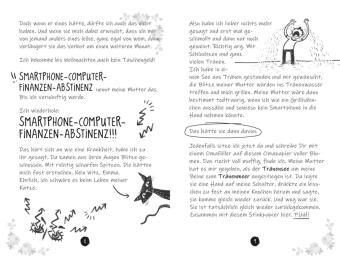 Doch wenn er eines hätte, dürfte ich auch das nicht
haben. Und wenn sie mich dabei erwischt, dass ich mir
von jemand anders eines leihe, ganz egal von wem, dann
verlängert sie das Verbot um einen weiteren Monat.
Ich bekomme bis Weihnachten auch kein Taschengeld!
SMARTPHONE-COMPUTER-
FINANZEN-ABSTINENZ nennt meine Mutter das.
Bis ich vernünftig werde.
Ich wiederhole:
SMARTPHONE-COMPUTER-
FINANZEN-ABSTINENZ!!!
Das hört sich an wie eine Krankheit, habe ich zu
ihr gesagt. Da kamen aus ihren Augen Blitze ge-
schossen. Mit richtig scharfen Spitzen. Die hätten
mich fast erstochen. Kein Witz, Emma.
Ehrlich, ich schwöre es beim Leben meiner
Katze.
Also habe ich lieber nichts mehr
gesagt und erst mal ge-
schmollt und dann nur noch
geweint. Richtig arg. Mit
Schluchzen und ganz
vielen Tränen.
Ich habe in ei-
nem See aus Tränen gestanden und mir gewünscht,
die Blitze meiner Mutter würden ins Tränenwasser
treffen und mich grillen. Meine Mutter wäre dann
bestimmt todtraurig, wenn ich wie ein Grillhähn-
chen aussähe und sowieso kein Smartphone in die
Hand nehmen könnte.
Das hätte sie dann davon.
Jedenfalls sitze ich jetzt da und schreibe Dir mit
einem Omafüller auf diesem Omapapier voller Blu-
men. Das riecht voll muffig, finde ich. Meine Mutter
hat es mir gegeben, als der Tränensee um meine
Beine zum Tränenmeer angestiegen ist. Da legte
sie eine Hand auf meine Schulter, drückte ein biss-
chen zu fest an meinen Knochen herum und sagte,
sie komme gleich wieder zurück. Und weg war sie.
Sie ist tatsächlich gleich wieder zurückgekommen.
Zusammen mit diesem Stinkpapier hier. Pfui!